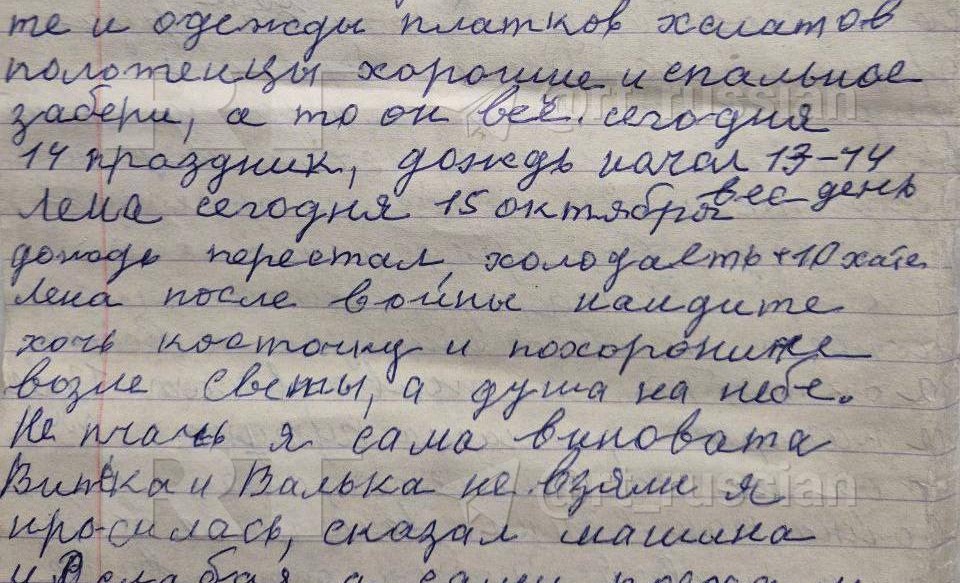 те и одежды платков халатов
полотенцы хорошие и спальное
забери, а то он всё. сегодня
14 праздник, дождь начал 13-14
Лена сегодня 15 октября вес день
дождь перестал, холодаеть +10 хате.
Лена после войны найдите
хочь косточку и похороните
возле Светы, а душа на небе.
Не плачь я сама виновата
Витька и Валька не взяли я
просилась, сказал машина
слабая а
RT @rt_russian
RT @rt_russian